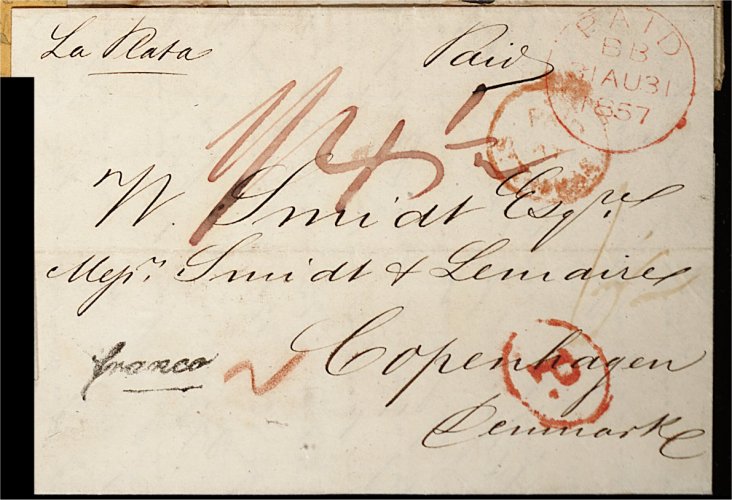 La Plata
Paid
PAID
BB
31 AU 31
1857
PAID
W. Smidt Esqre
Messrs. Smidt & Lemaire
franco
Copenhagen
P.
Denmark